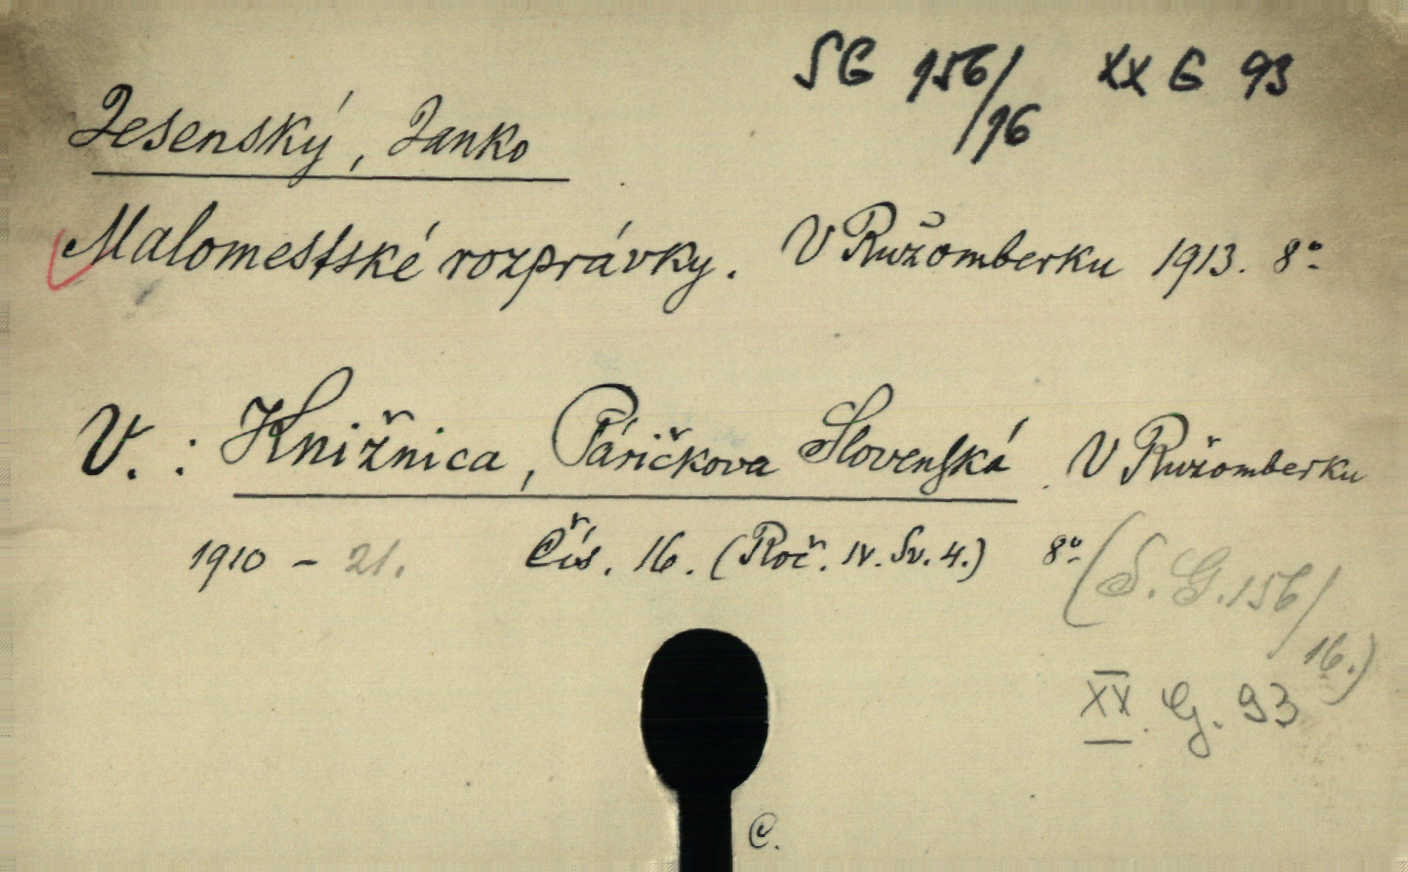 SG 156/16 XX G 93
Jesenský, Janko
Malomestské rozprávky. V Ružomberku 1913. 8°
V.: Knižnica, Páričkova Slovenská. V Ružomberku
1910 - 21. Čís. 16. (Roč. IV. Sv. 4.) 8°
(S. G. 156/16.)
XX. G. 93
C.